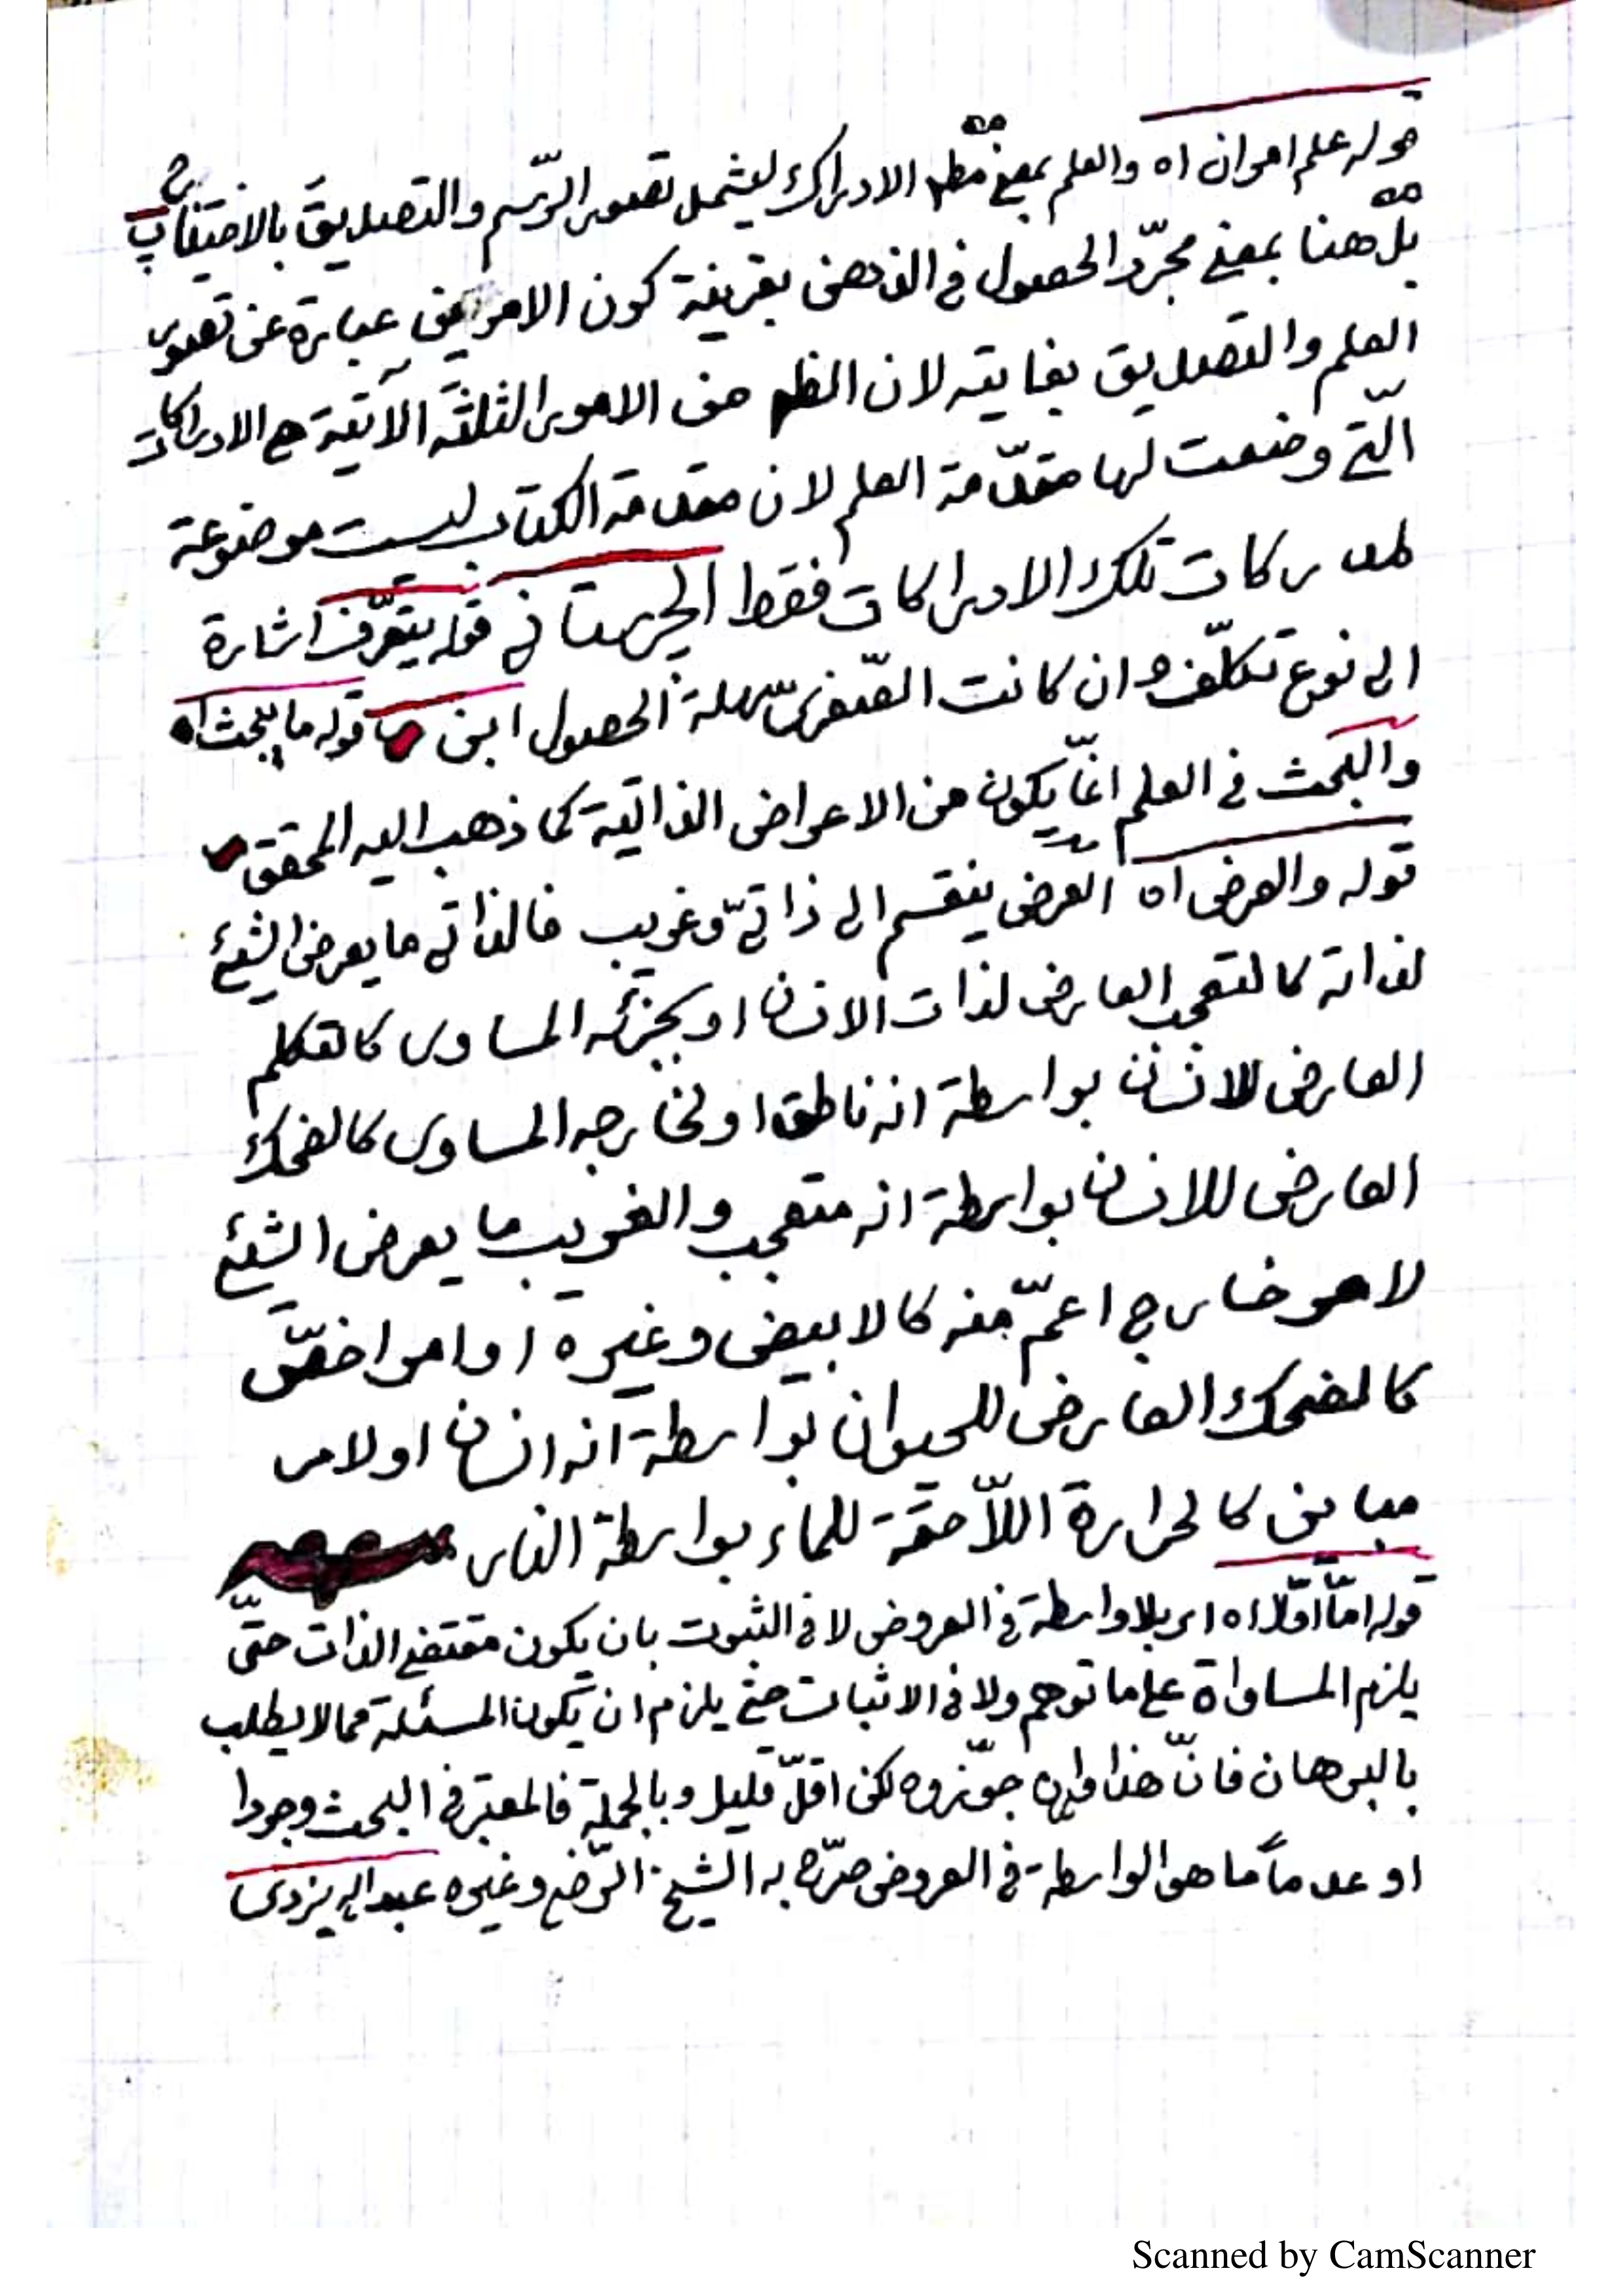 قوله علم امران اه والعلم بمعنى مطلق الادراك ليشمل تصور الرّسم والتصديق بالاحتياج
بل هنا بمعنى مجرّد الحصول في الذهن بقرينة كون الامرين عبارة عن تصور
العلم والتصديق بغايته لان الظ من الامور الثلثة الآتية هي الادراكات
الّتي وضعت لها مقدّمة العلم لان مقدمة الكتاب ليست موضوعة
لمدركات تلك الادراكات فقط الجرستاني قوله يتعرّف اشارة
الى نوع تكلّف وان كانت الصّغرى سهلة الحصول ابن قوله ما يبحث اه
والبحث في العلم انّما يكون من الاعراض الذاتية كما ذهب اليه المحقق
قوله والعرض اه العرض ينقسم الى ذاتيّ وغريب فالذاتي ما يعرض الشيئ
لذاته كالتعجب العارض لذات الانسان او بجزئه المساوى كالتكلم
العارض للانسان بواسطة انه ناطق او لخارجه المساوى كالضحك
العارض للانسان بواسطة انه متعجب والغريب ما يعرض الشيئ
لا هو خارج اعمّ منه كالابيض وغيره او امر اخصّ
كالضحك العارض للحيوان بواسطة انه انسان او لامر
مباين كالحرارة اللاّحقة للماء بواسطة النار
قوله امّا اوّلا اه اى بلا واسطة في العروض لا في الثبوت بان يكون مقتضى الذات حتّى
يلزم المساواة على ما توهم ولا في الاثبات حتى يلزم ان تكون المسئلة مما لا يطلب
بالبرهان فانّ هذا وان جوّزوه لكن اقلّ قليل وبالجملة فالمعتبر في البحث وجودا
او عدماً ما هو الواسطة في العروض صرّح به الشيخ الرّضي وغيره عبد الله يزدى
Scanned by CamScanner